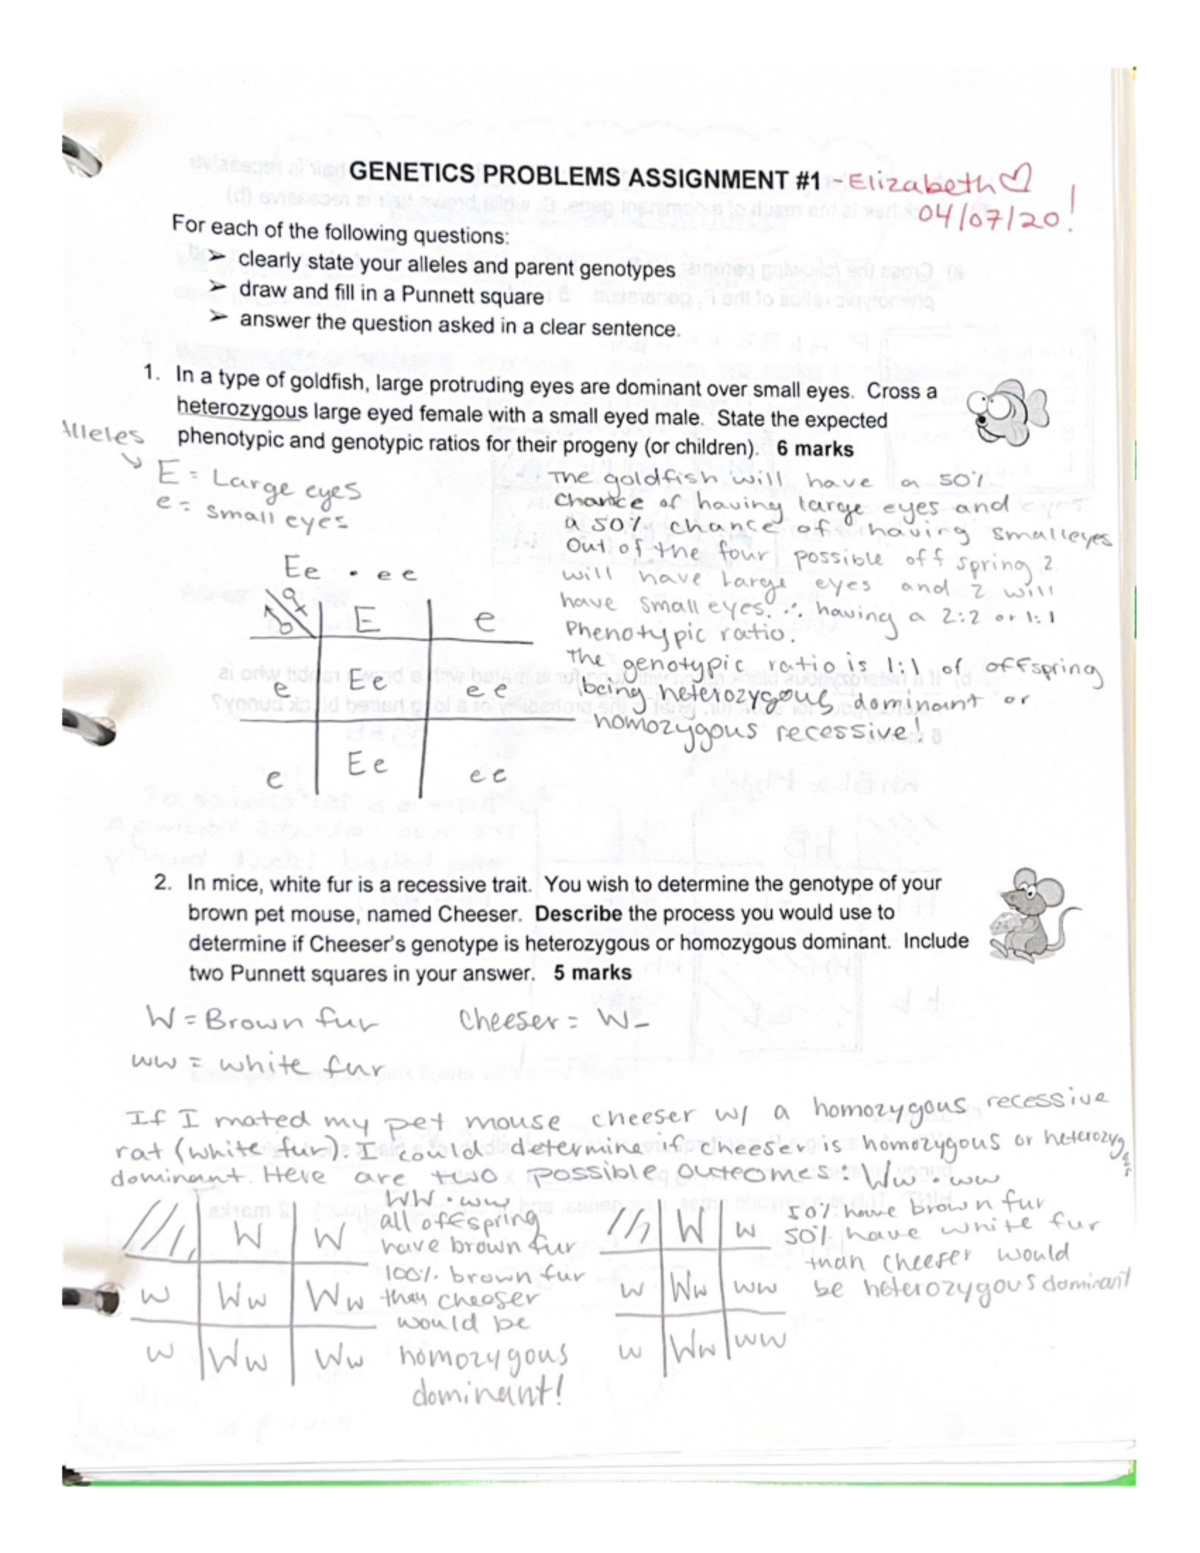 GENETICS PROBLEMS ASSIGNMENT #1 -Elizabeth♡
04/07/20!
For each of the following questions:
➢ clearly state your alleles and parent genotypes
➢ draw and fill in a Punnett square
➢ answer the question asked in a clear sentence.
1. In a type of goldfish, large protruding eyes are dominant over small eyes. Cross a
heterozygous large eyed female with a small eyed male. State the expected
phenotypic and genotypic ratios for their progeny (or children). 6 marks
Alleles
E = Large eyes
e = small eyes
Ee · ee
♀ ♂ E e
e Ee ee
e Ee ee
The goldfish will have a 50%
chance of having large eyes and
a 50% chance of having small eyes
Out of the four possible off spring 2
will have large eyes and 2 will
have small eyes. ∴ having a 2:2 or 1:1
Phenotypic ratio.
The genotypic ratio is 1:1 of offspring
being heterozygous dominant or
homozygous recessive!
2. In mice, white fur is a recessive trait. You wish to determine the genotype of your
brown pet mouse, named Cheeser. Describe the process you would use to
determine if Cheeser's genotype is heterozygous or homozygous dominant. Include
two Punnett squares in your answer. 5 marks
W = Brown fur Cheeser = W_
ww = white fur
If I mated my pet mouse cheeser w/ a homozygous recessive
rat (white fur) I could determine if cheeser is homozygous or heterozygous
dominant. Here are two possible outcomes: Ww · ww
WW · ww
all offspring
have brown fur
100% brown fur
then cheeser
would be
homozygous
dominant!
W W
w Ww Ww
w Ww Ww
W w
w Ww ww
w Ww ww
50% have brown fur
50% have white fur
than cheeser would
be heterozygous dominant